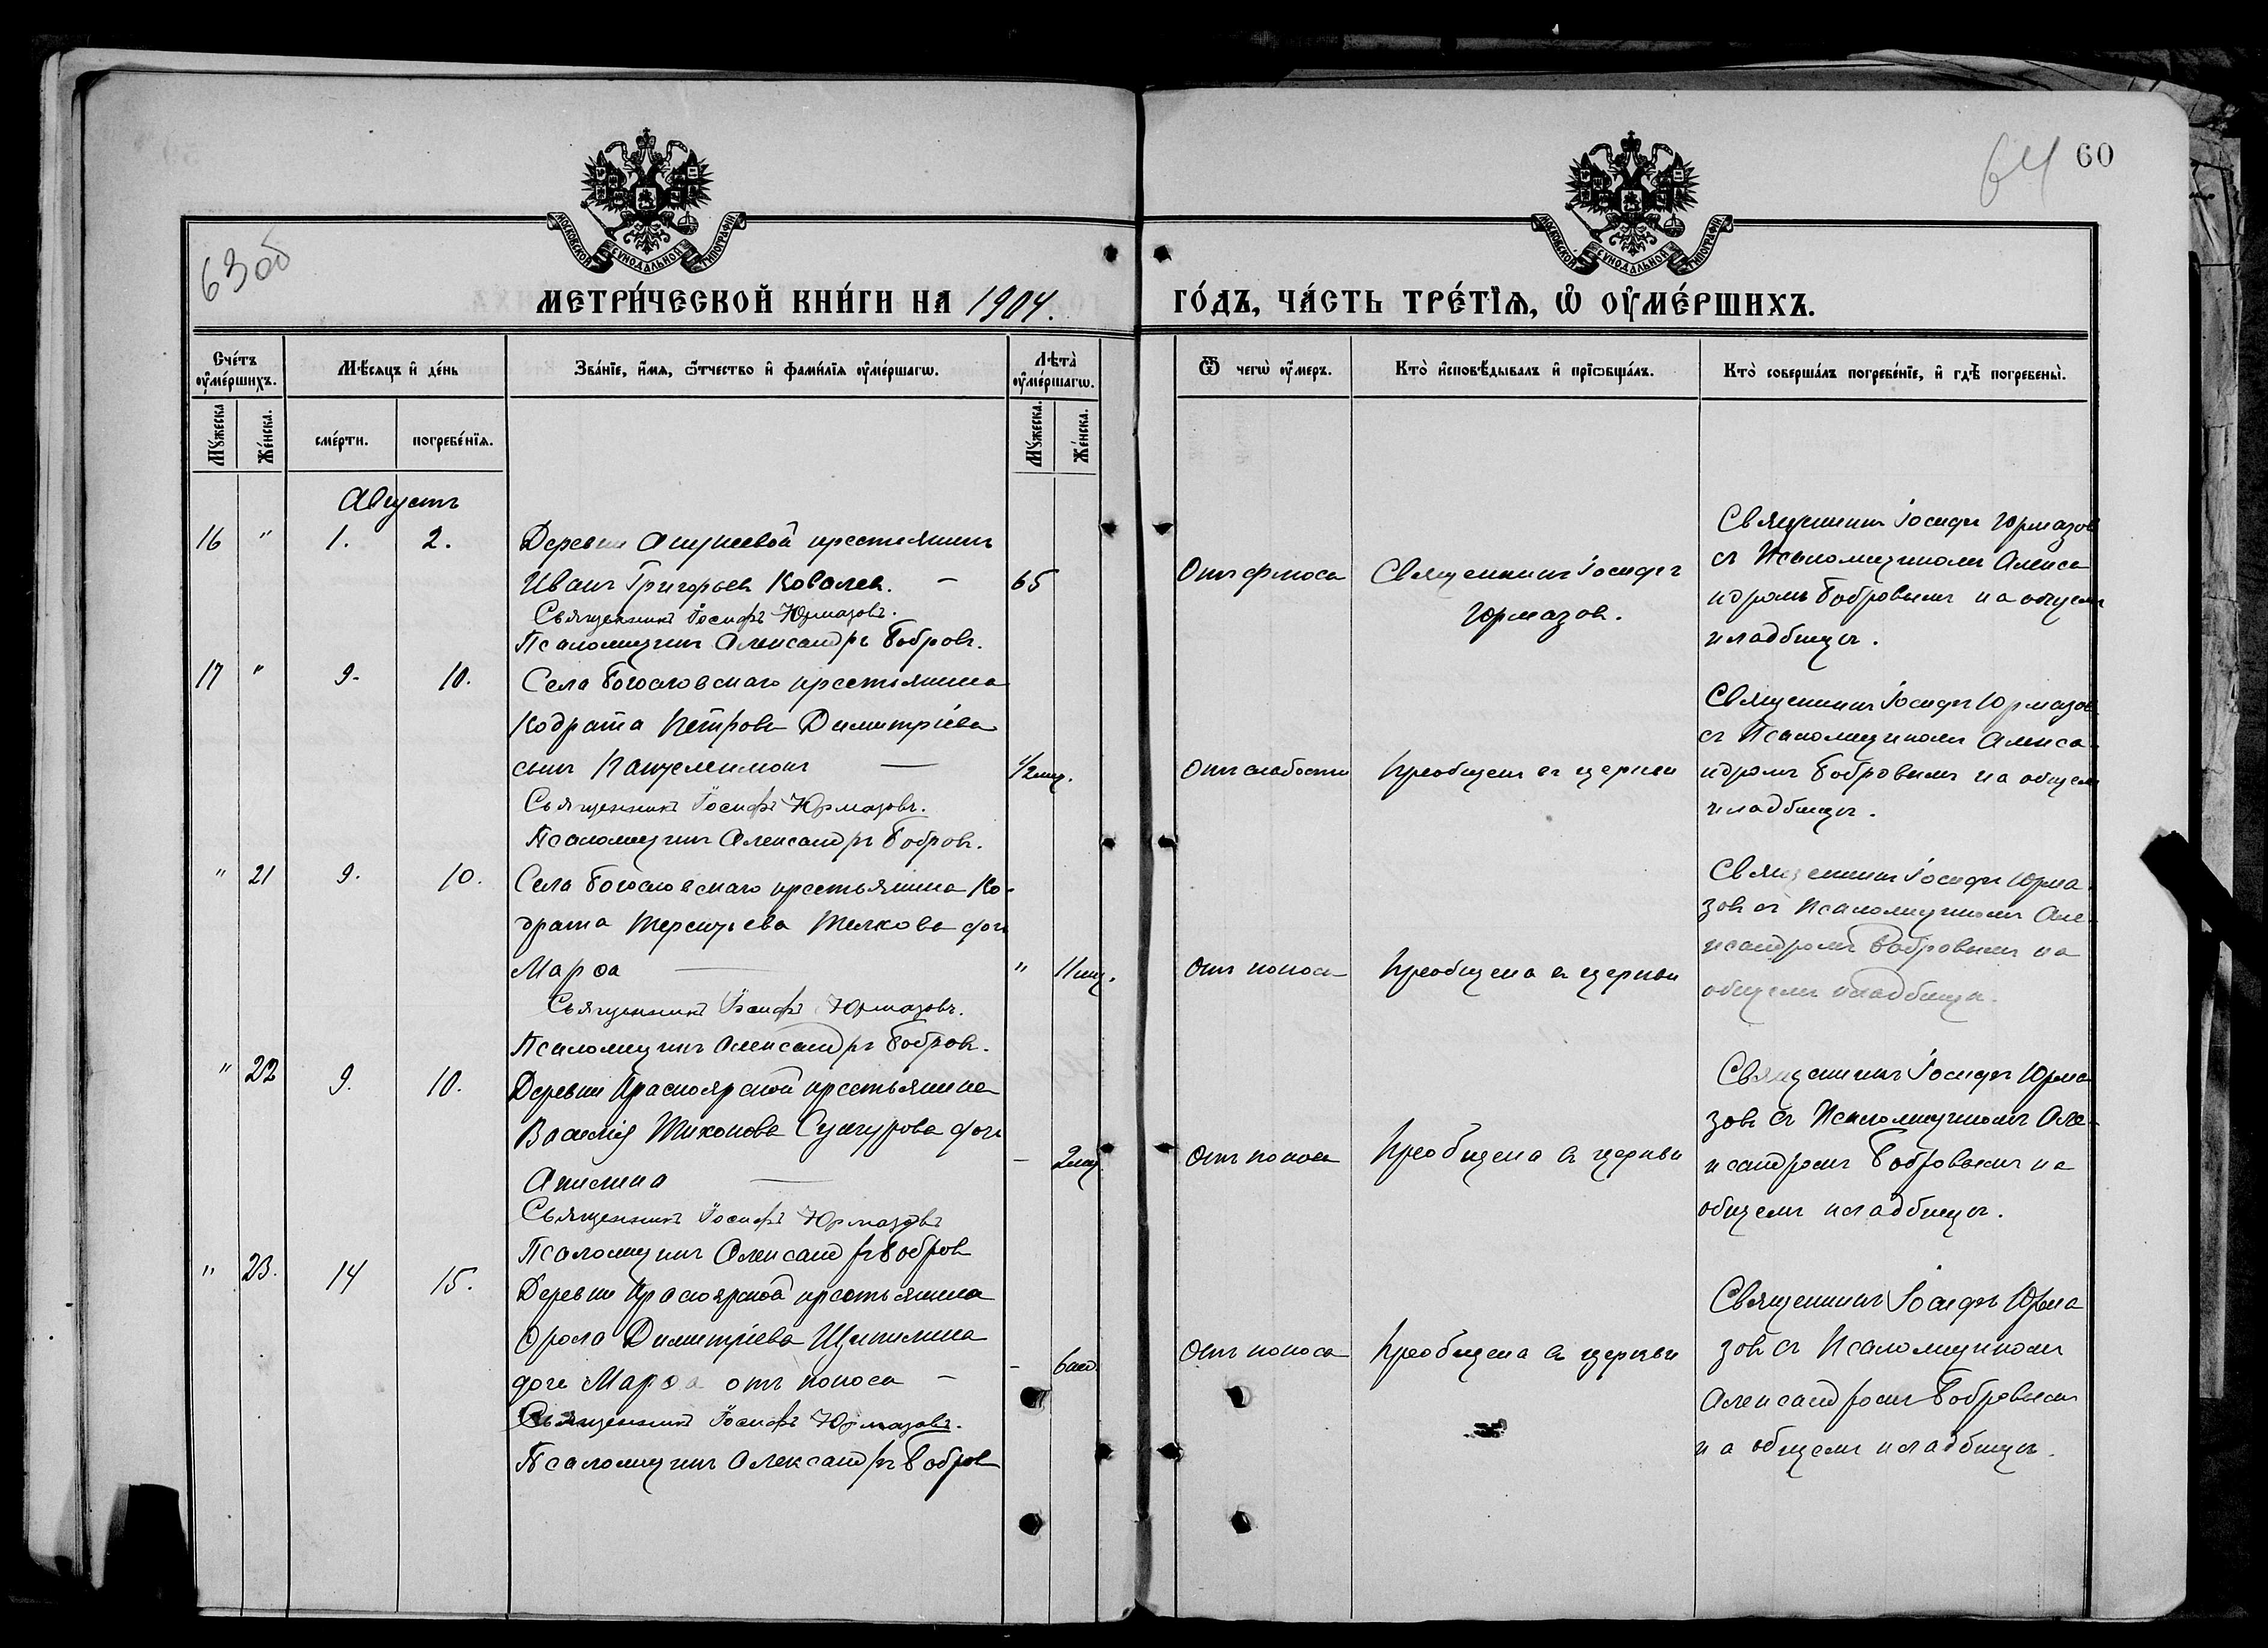 64 60
63 об
МОСКОВСКОЙ СУНОДАЛЬНОЙ ТИПОГРАФІИ
МОСКОВСКОЙ СУНОДАЛЬНОЙ ТИПОГРАФІИ
МЕТРИ́ЧЕСКОЙ КНИ́ГИ НА 1904. ГО́ДЪ, ЧА́СТЬ ТРЕ́ТЇѦ, Ѡ ОУ҆МЕ́РШИХЪ.
Сче́тъ оу҆ме́ршихъ.
Мѣ́сяцъ и҆ де́нь
Зва́нїе, и҆́мѧ, ѻ҆́тчество и҆ фами́лїѧ оу҆ме́ршагѡ.
Лѣта̀ оу҆ме́ршагѡ.
Ѿ чегѡ̀ оу҆́меръ.
Кто̀ и҆сповѣ́дывалъ и҆ прїѡбща́лъ.
Кто̀ соверша́лъ погребе́нїе, и҆ гдѣ̀ погребены̀.
Мꙋ́жеска
Же́нска.
сме́рти.
погребе́нїѧ.
Мꙋ́жеска.
Же́нска.
Августъ
16 " 1. 2.
Деревни крестьянинъ
Иванъ Григорьевъ Ковалевъ. — 65
Священникъ Іосифъ Юрмазовъ.
Псаломщикъ Александръ Бобровъ.
Отъ флюса
Священникъ Іосифъ
Юрмазов.
Священникъ Іосифъ Юрмазов
съ Псаломщикомъ Алекса
ндромъ Бобровымъ на общемъ
кладбищѣ.
17 " 9. 10.
Села Богословскаго крестьянина
Кодрата Петрова Димитріева
сынъ Пантелеимонъ — 1/2 мц.
Священникъ Іосифъ Юрмазовъ.
Псаломщикъ Александръ Бобровъ.
Отъ слабости
Преобщенъ въ церкви
Священникъ Іосифъ Юрмазов
съ Псаломщикомъ Алекса
ндромъ Бобровымъ на общемъ
кладбищѣ.
" 21 9. 10.
Села Богословскаго крестьянина Ко-
драта Терентьева дочь
Марѳа — " 11 мц.
Священникъ Іосифъ Юрмазовъ.
Псаломщикъ Александръ Бобровъ.
Отъ поноса
Преобщена въ церкви
Священникъ Іосифъ Юрма
зовъ съ Псаломщикомъ Але
ксандромъ Бобровымъ на
общемъ кладбищѣ.
" 22 9. 10.
Деревни Красноярской крестьянина
Василія Тихонова дочь
Акилина — — 2 мц.
Священникъ Іосифъ Юрмазовъ
Псаломщикъ Александръ Бобров
Отъ поноса
Преобщена въ церкви
Священникъ Іосифъ Юрма
зовъ съ Псаломщикомъ Але-
ксандромъ Бобровымъ на
общемъ кладбищѣ.
" 23. 14 15.
Деревни Красноярской крестьянина
Фрола Димитріева
дочь Марѳа отъ поноса —
Священникъ Іосифъ Юрмазовъ.
Псаломщикъ Александръ Бобров
Отъ поноса
Преобщена въ церкви
Священникъ Іосифъ Юрма
зовъ съ Псаломщикомъ
Александромъ Бобровымъ
на общемъ кладбищѣ.